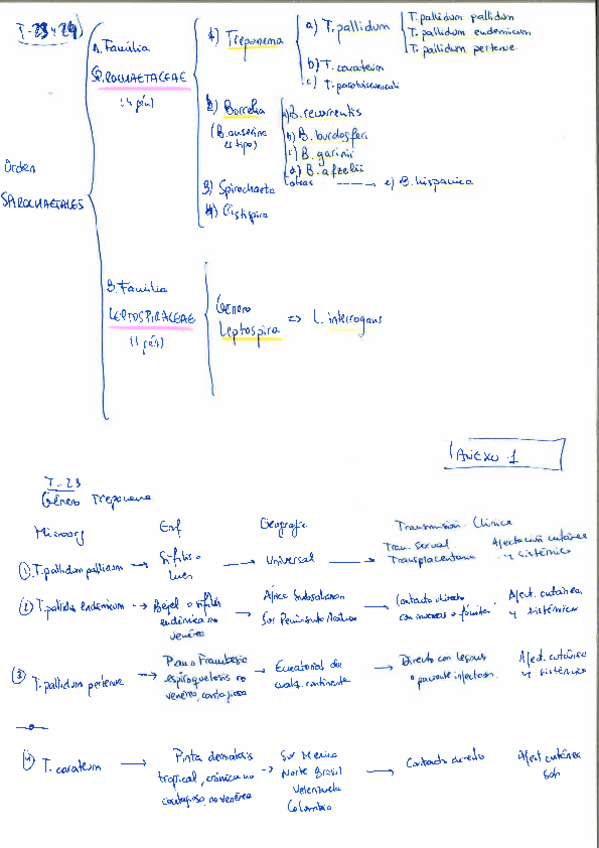 T-23+24
Orden
SPIROCHAETALES
A. Familia
SPIROCHAETACEAE
(4 gén)
1) Treponema
a) T. pallidum
T. pallidum pallidum
T. pallidum endemicum
T. pallidum pertenue
b) T. carateum
c) T.
2) Borrelia
(B. anserina
es tipo)
a) B. recurrentis
b) B. burdosferi
c) B. garinii
d) B. afzelii
otras → e) B. hispanica
3) Spirochaeta
4) Cistipira
B. Familia
LEPTOSPIRACEAE
(1 gén)
Género
Leptospira
=> L. interrogans
ANEXO 1
T-23
Género Treponema
Microorg Enf Geografía Transmisión Clínica
① T. pallidum pallidum → Sífilis o Lues → Universal → Tran. Sexual Transplacentaria Afectación cutánea y sistémico
② T. pallidum endemicum → Bejel o sífilis endémica no venérea → África Subsahariana Sur Península → Contacto directo con mucosas o Afect. cutánea y sistémico
③ T. pallidum pertenue → Pian o Frambesia espiroquetosis no venérea, contagiosa → Ecuatorial de cualq. continente → Directo con lesiones o paciente infectado Afect. cutánea y sistémico
④ T. carateum → Pinta dermatosis tropical, crónica no contagiosa, no venérea → Sur Mexico Norte Brasil Venezuela Colombia → Contacto directo Afect cutánea solo